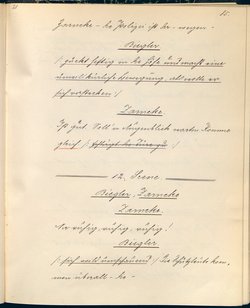 15.
Zarncke – die Polizei ist da – wegen –
Biegler
(: zuckt heftig in die Höhe und macht eine
unwillkürliche Bewegung, als wolle er
sich verstecken :)
Zarncke
Ist gut. Soll 'n Augenblick warten. Komme
gleich. (:
12. Scene
Biegler, Zarncke
Zarncke
Nu ruhig, ruhig, ruhig!
Biegler
(: sich wild umschauend :) Die Schutzleute kom-
men überall – die –